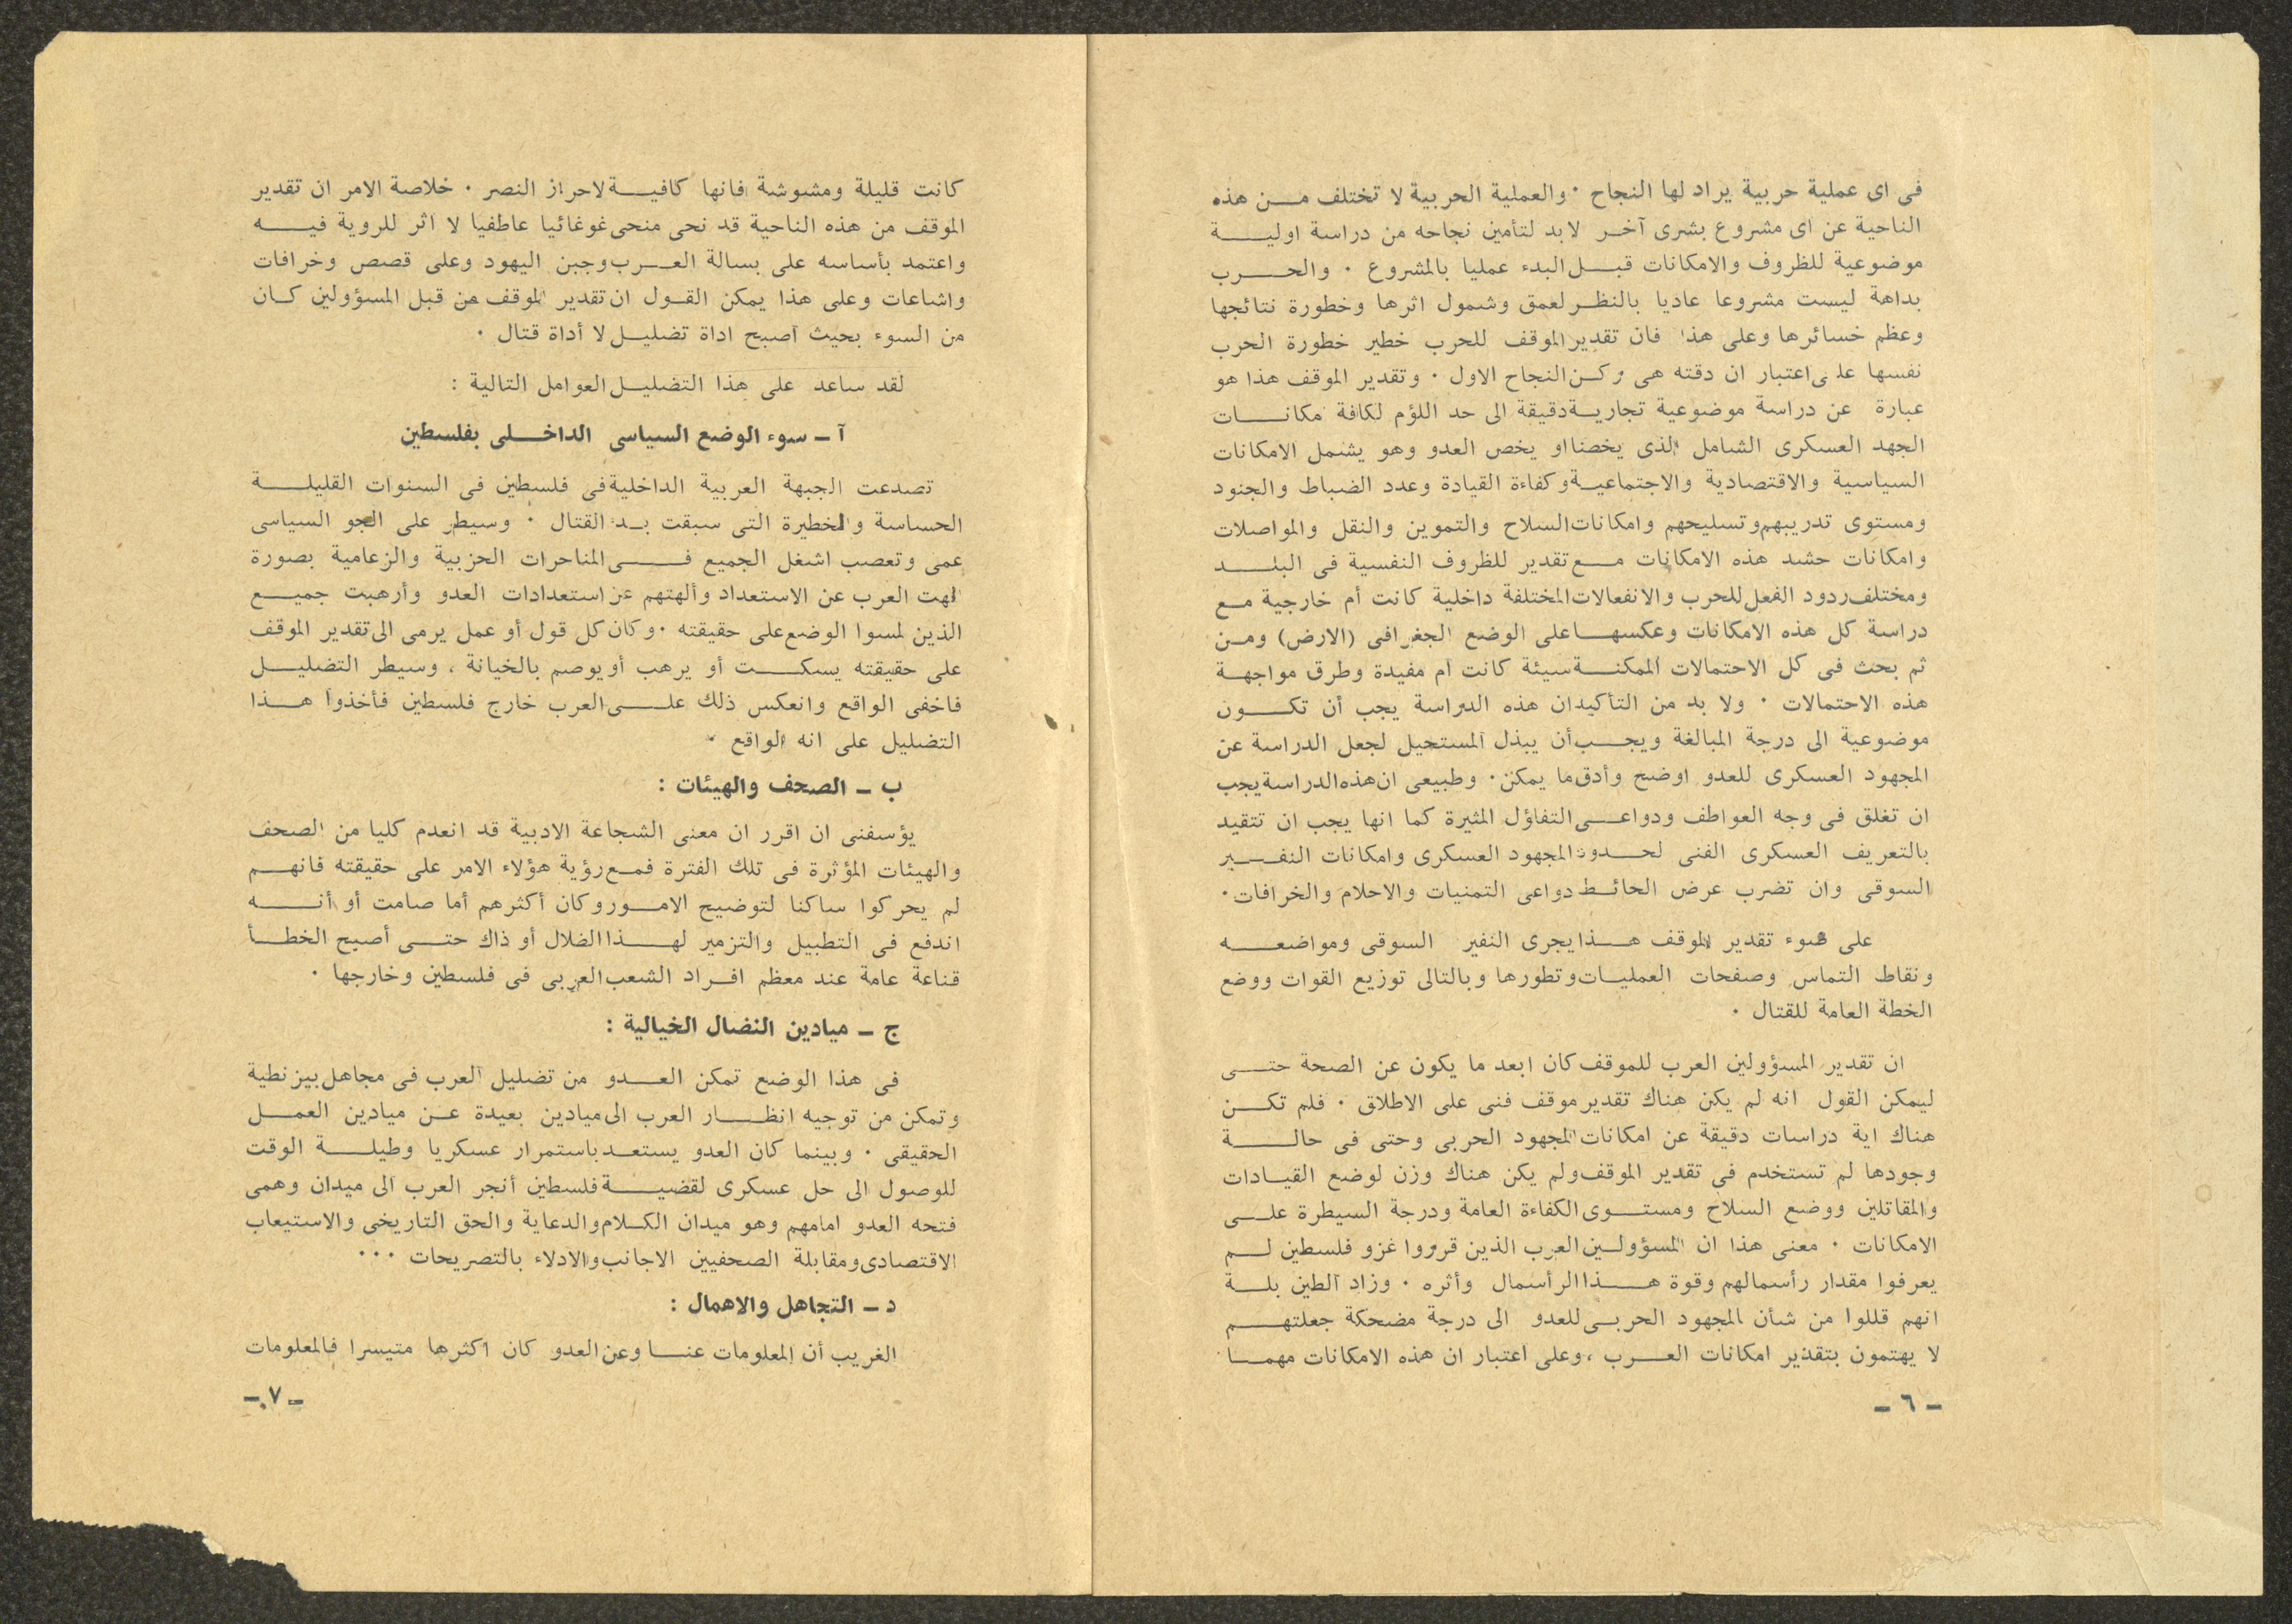 فى اى عملية حربية يراد لها النجاح . والعملية الحربية لا تختلف من هذه
الناحية عن اى مشروع بشرى آخر لا بد لتأمين نجاحه من دراسة اولية
موضوعية للظروف والامكانات قبل البدء عمليا بالمشروع . والحرب
بداهة ليست مشروعا عاديا بالنظر لعمق وشمول اثرها وخطورة نتائجها
وعظم خسائرها وعلى هذا فان تقدير الموقف للحرب خطير خطورة الحرب
نفسها على اعتبار ان دقته هى ركن النجاح الاول . وتقدير الموقف هذا هو
عبارة عن دراسة موضوعية تجارية دقيقة الى حد اللؤم لكافة مكانات
الجهد العسكرى الشامل الذى يخصنا او يخص العدو وهو يشمل الامكانات
السياسية والاقتصادية والاجتماعية وكفاءة القيادة وعدد الضباط والجنود
ومستوى تدريبهم وتسليحهم وامكانات السلاح والتموين والنقل والمواصلات
وامكانات حشد هذه الامكانات مع تقدير للظروف النفسية فى البلد
ومختلف ردود الفعل للحرب والانفعالات المختلفة داخلية كانت أم خارجية مع
دراسة كل هذه الامكانات وعكسها على الوضع الجغرافى (الارض) ومن
ثم بحث فى كل الاحتمالات الممكنة سيئة كانت ام مفيدة وطرق مواجهة
هذه الاحتمالات . ولا بد من التأكيد ان هذه الدراسة يجب أن تكون
موضوعية الى درجة المبالغة ويجب أن يبذل المستحيل لجعل الدراسة عن
المجهود العسكرى للعدو اوضح وأدق ما يمكن . وطبيعى ان هذه الدراسة يجب
ان تغلق فى وجه العواطف ودواعى التفاؤل المثيرة كما انها يجب ان تتقيد
بالتعريف العسكرى الفنى لحدود المجهود العسكرى وامكانات النفير
السوقى وان تضرب عرض الحائط دواعى التمنيات والاحلام والخرافات .
على ضوء تقدير الموقف هذا يجرى النفير السوقى ومواضعه
ونقاط التماس وصفحات العمليات وتطورها وبالتالى توزيع القوات ووضع
الخطة العامة للقتال .
ان تقدير المسؤولين العرب للموقف كان ابعد ما يكون عن الصحة حتى
ليمكن القول انه لم يكن هناك تقدير موقف فنى على الاطلاق . فلم تكن
هناك اية دراسات دقيقة عن امكانات المجهود الحربى وحتى فى حالة
وجودها لم تستخدم فى تقدير الموقف ولم يكن هناك وزن لوضع القيادات
والمقاتلين ووضع السلاح ومستوى الكفاءة العامة ودرجة السيطرة على
الامكانات . معنى هذا ان المسؤولين العرب الذين قرروا غزو فلسطين لم
يعرفوا مقدار رأسمالهم وقوة هذا الرأسمال وأثره . وزاد الطين بلة
انهم قللوا من شأن المجهود الحربى للعدو الى درجة مضحكة جعلتهم
لا يهتمون بتقدير امكانات العرب ، وعلى اعتبار ان هذه الامكانات مهما
– ٦ –
كانت قليلة ومشوشة فانها كافية لاحراز النصر . خلاصة الامر ان تقدير
الموقف من هذه الناحية قد نحى منحى غوغائيا عاطفيا لا اثر للروية فيه
واعتمد بأساسه على بسالة العرب وجبن اليهود وعلى قصص وخرافات
واشاعات وعلى هذا يمكن القول ان تقدير الموقف من قبل المسؤولين كان
من السوء بحيث اصبح اداة تضليل لا أداة قتال .
لقد ساعد على هذا التضليل العوامل التالية :
آ – سوء الوضع السياسى الداخلى بفلسطين
تصدعت الجبهة العربية الداخلية فى فلسطين فى السنوات القليلة
الحساسة والخطيرة التى سبقت بدء القتال . وسيطر على الجو السياسى
عمى وتعصب اشغل الجميع فى المناحرات الحزبية والزعامية بصورة
الهت العرب عن الاستعداد وألهتهم عن استعدادات العدو وأرهبت جميع
الذين لمسوا الوضع على حقيقته . وكان كل قول أو عمل يرمى الى تقدير الموقف
على حقيقته يسكت أو يرهب أو يوصم بالخيانة ، وسيطر التضليل
فاخفى الواقع وانعكس ذلك على العرب خارج فلسطين فأخذوا هذا
التضليل على انه الواقع .
ب – الصحف والهيئات :
يؤسفنى ان اقرر ان معنى الشجاعة الادبية قد انعدم كليا من الصحف
والهيئات المؤثرة فى تلك الفترة فمع رؤية هؤلاء الامر على حقيقته فانهم
لم يحركوا ساكنا لتوضيح الامور وكان أكثرهم أما صامت أو أنه
اندفع فى التطبيل والتزمير لهذا الضلال أو ذاك حتى أصبح الخطأ
قناعة عامة عند معظم افراد الشعب العربى فى فلسطين وخارجها .
ج – ميادين النضال الخيالية :
فى هذا الوضع تمكن العدو من تضليل العرب فى مجاهل بيزنطية
وتمكن من توجيه انظار العرب الى ميادين بعيدة عن ميادين العمل
الحقيقى . وبينما كان العدو يستعد باستمرار عسكريا وطيلة الوقت
للوصول الى حل عسكرى لقضية فلسطين أنجر العرب الى ميدان وهمى
فتحه العدو امامهم وهو ميدان الكلام والدعاية والحق التاريخى والاستيعاب
الاقتصادى ومقابلة الصحفيين الاجانب والادلاء بالتصريحات ...
د – التجاهل والاهمال :
الغريب أن المعلومات عنا وعن العدو كان اكثرها متيسرا فالمعلومات
– ٧ –